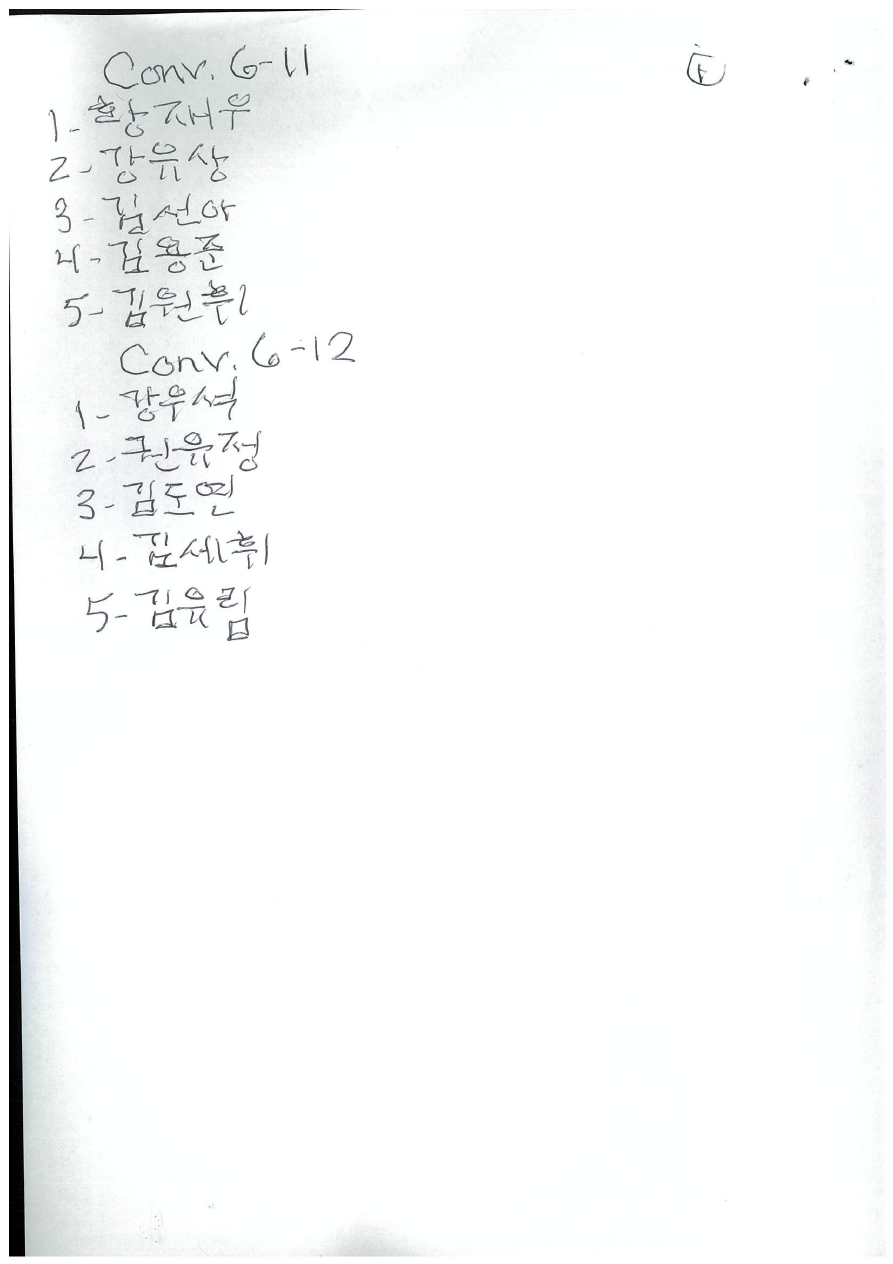 Conv. 6-11
F
1- 황재우
2- 강유상
3- 김선아
4- 김용준
5- 김원휘
Conv. 6-12
1- 강우석
2- 권유정
3- 김도연
4- 김세휘
5- 김유림